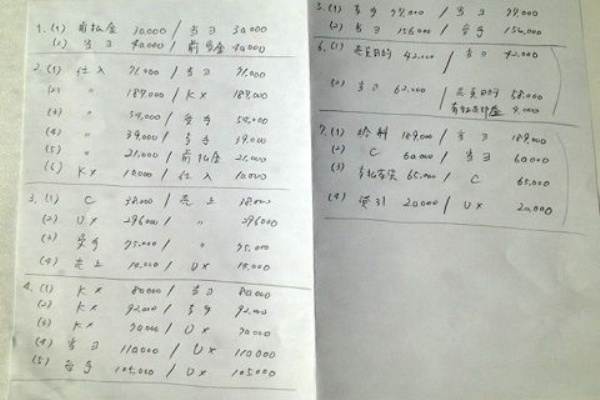 1. (1) 前払金 30,000 / 当ヨ 30,000
(2) 当ヨ 40,000 / 前受金 40,000
2. (1) 仕入 71,000 / 当ヨ 71,000
(2) 〃 189,000 / K× 189,000
(3) 〃 54,000 / 受手 54,000
(4) 〃 39,000 / 当手 39,000
(5) 〃 21,000 / 前払金 21,000
(6) K× 10,000 / 仕入 10,000
3. (1) C 38,000 / 売上 38,000
(2) U× 296000 / 〃 296000
(3) 受手 75,000 / 〃 75,000
(4) 売上 14,000 / U× 14,000
4. (1) K× 80,000 / 当ヨ 80,000
(2) K× 92,000 / 当手 92,000
(3) K× 70,000 / U× 70,000
(4) 当ヨ 110,000 / U× 110,000
(5) 受手 105,000 / U× 105,000
5. (1) 当手 77,000 / 当ヨ 77,000
(2) 当ヨ 156,000 / 受手 156,000
6. (1) 売買目的 42,000 / 当ヨ 42,000
(2) 当ヨ 62,000 / 売買目的 58,000
4,000
7. (1) 給料 189,000 / 当ヨ 189,000
(2) C 60,000 / 当ヨ 60,000
(3) 65,000 / C 65,000
(4) 20,000 / U× 20,000